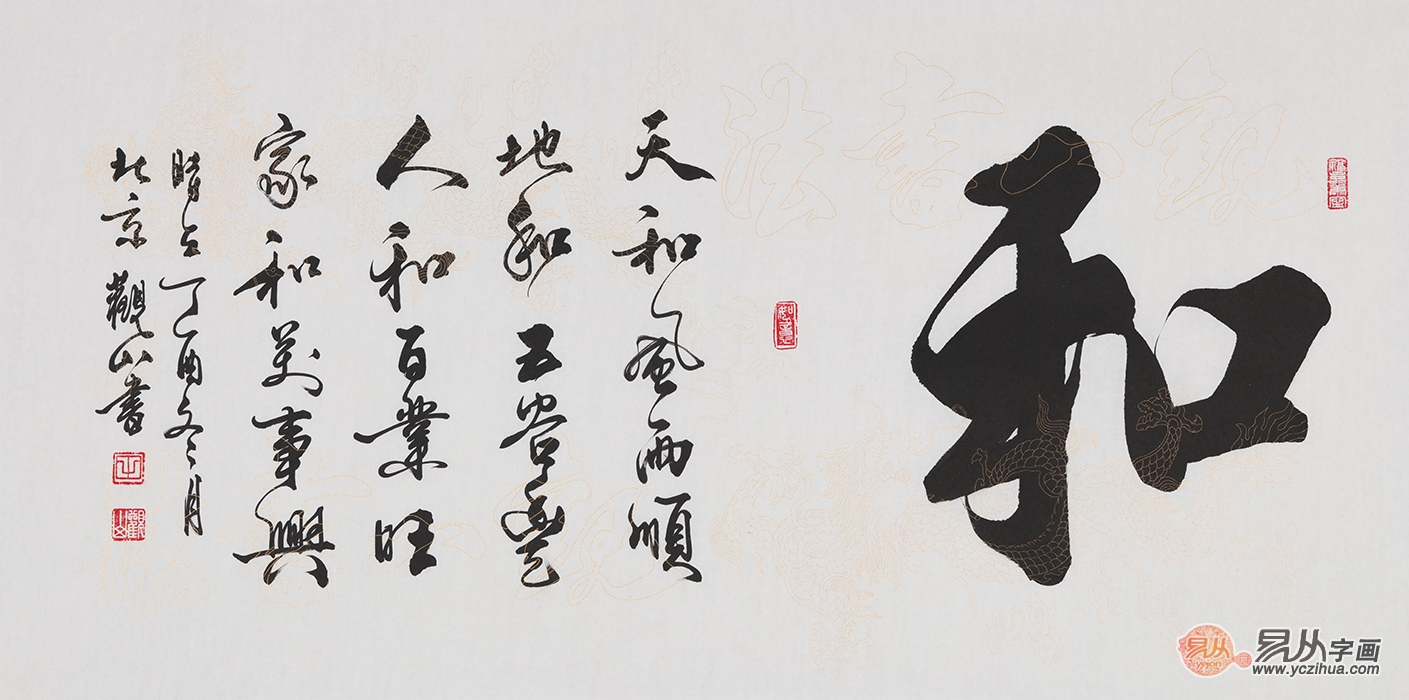 和
天和風雨順
地和五谷豐
人和百業旺
家和萬事興
時在丁酉冬月
北京觀山書
觀山書法
易从
易从字画
www.yczihua.com